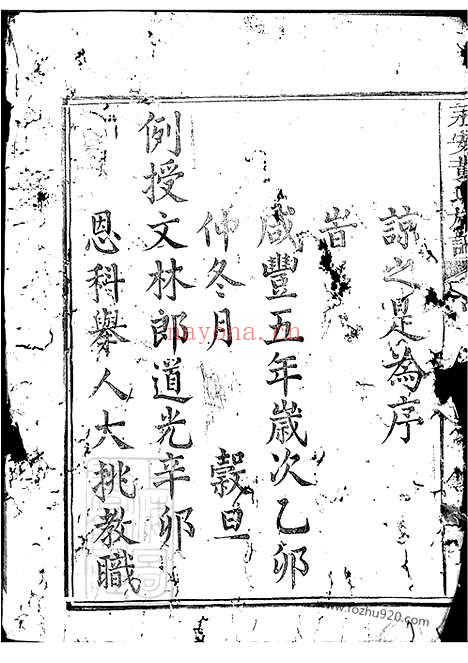 黃氏族譜
諒之是為序
旹
咸豐五年歲次乙卯
仲冬月 穀旦
例授文林郎道光辛卯
恩科舉人大挑教職
nayona.cn
www.fozhu920.com